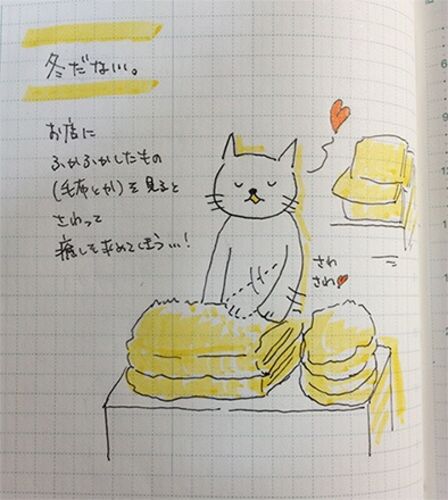 冬だなぃ。
お店に
ふかふかしたもの
(毛布とか)を見ると
さわって
癒しを求めてしまう…!
さわ
さわ